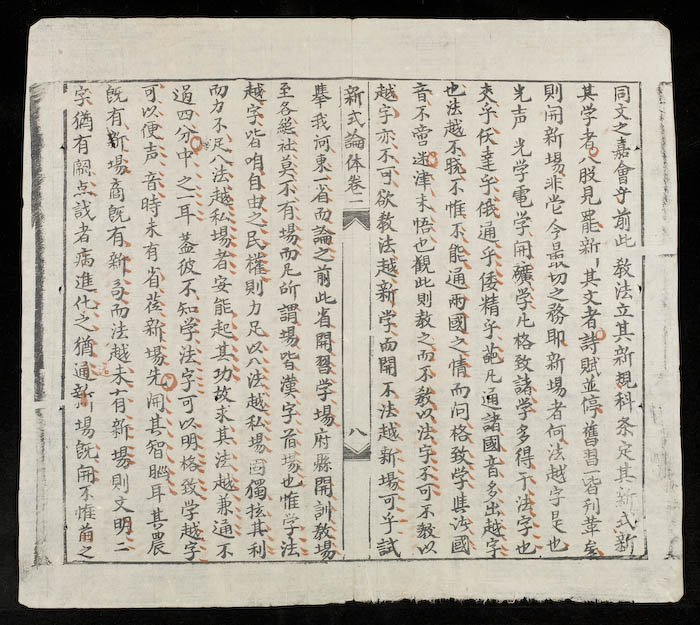 同文之嘉會乎前此教法立其新規科条定其新式新
其学者八股見罷新〻其文者詩賦並停舊習一皆刊革矣
則開新場非岂今最切之務耶新場者何法越字是也
光声光学電学開礦学凡格致諸学多得于法字也
夾乎仸達乎俄通乎倭精乎葩凡通諸國音多出越字
也法越不脱不惟不能通兩國之情而问格致学與法國
音不啻迷津未悟也觀此則教之而不教以法字不可不教以
越字亦不可欲教法越新学而開不法越新場可乎試
新式論体卷二
八
舉我河東一省而論之前此省開習学場府縣開訓教場
至各總社莫不有場而凢所謂場皆漢字旧場也惟学法
越字皆咱自由之民權則力足以入法越私場固獨挍其利
而力不足入法越私場者安能起其功故求其法越兼通不
過四分中之一耳葢彼不知学法字可以明格致学越字
可以便声音時未有省莅新場先開其智朏耳其農
既有新場商既有新易而法越未有新場則文明二
字猶有闕点哉者病進化之猶通新場既開不惟前之